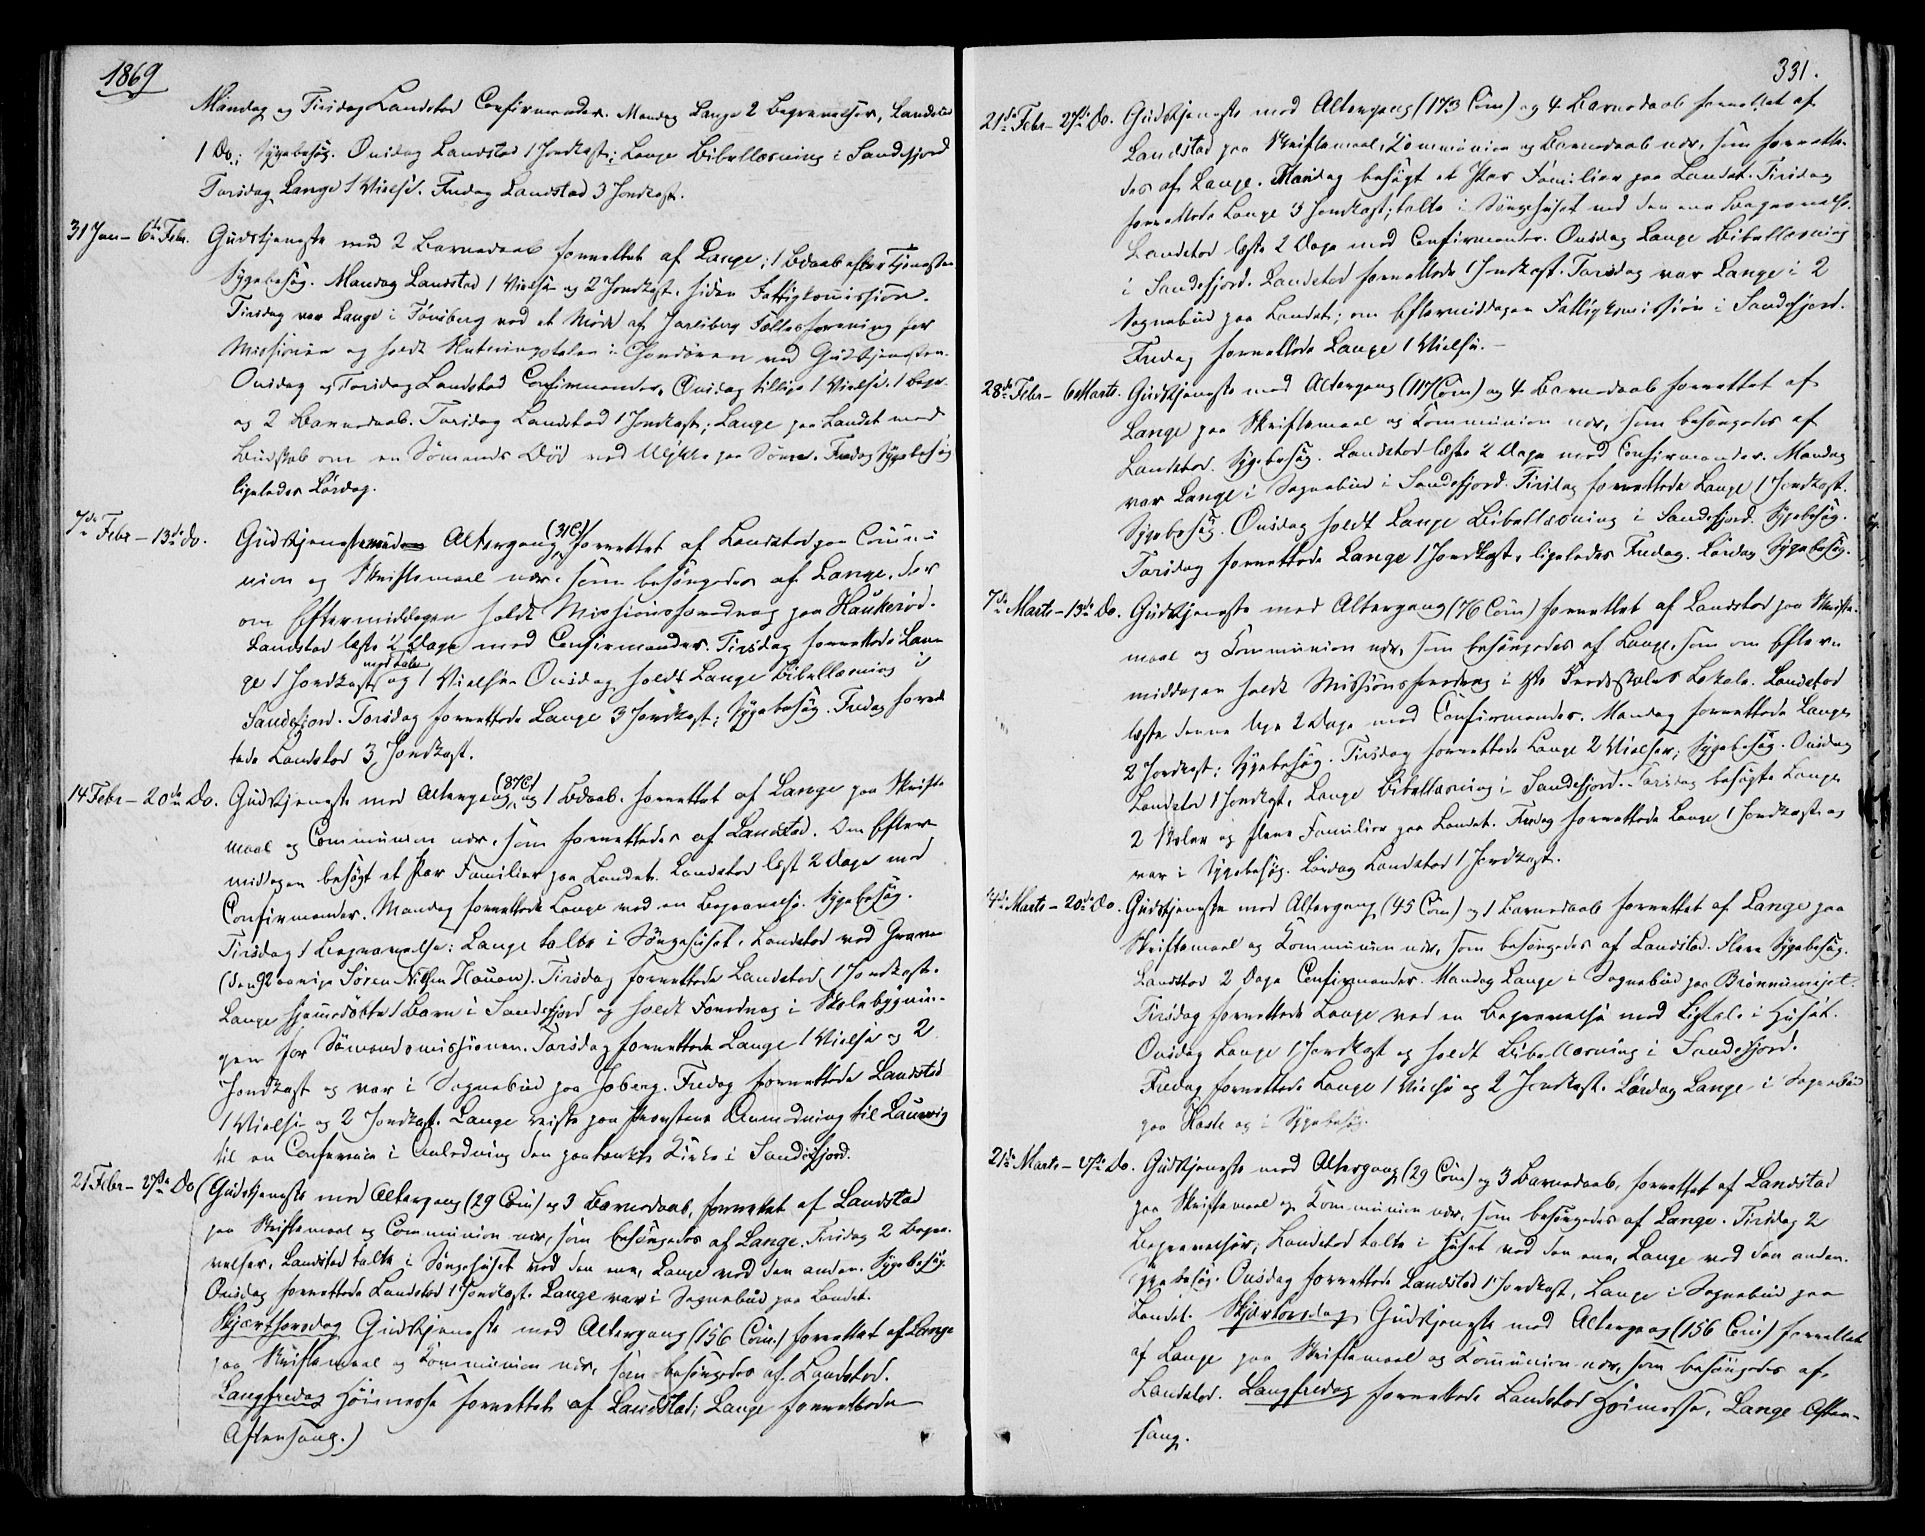 1869
Mandag og Tirsdag Landstad Confirmander. Mandag Lange 2 Begravelser, Landstad
1 Do.; Sygebesøg. Onsdag Landstad 1 Jordkast; Lange Bibellæsning i Sandefjord
Torsdag Lange 1 Vielse. Fredag Landstad 3 Jordkast.
31 Jan – 6te Febr. Gudstjeneste med 2 Barnedaab forrettet af Lange; 1 Bdaab efter Tjenesten.
Sygebesøg. Mandag Landstad 1 Vielse og 2 Jordkast. siden Fattigkomission.
Tirsdag var Lange i Tønsberg ved et Møde af Jarlsberg Fællesforening for
Missionen og holdt Slutningstalen i Chordøren ved Gudstjenesten.
Onsdag og Torsdag Landstad Confirmander, Onsdag tillige 1 Vielse, 1 Begr.
og 2 Barnedaab. Torsdag Landstad 1 Jordkast; Lange paa Landet med
Budskab om en Sømands Død ved Ulykke paa Søen. Fredag Sygebesøg
ligeledes Lørdag.
7de Febr – 13de Do. Gudstjeneste med Altergang (31 C) forrettet af Landstad paa Commu-
nion og Skriftemaal nær, som besørgedes af Lange, der
om Eftermiddagen holdt Missionsforedrag paa Haukerød.
Landstad læste 2 Dage med Confirmander. Tirsdag forrettede Lan-
ge 1 Jordkast med tale og 1 Vielse. Onsdag holdt Lange Bibellæsning i
Sandefjord. Torsdag forrettede Lange 3 Jordkast; Sygebesøg. Fredag forret-
tede Landstad 3 Jordkast.
14 Febr – 20de Do. Gudstjeneste med Altergang (87 C) og 1 Bdaab. forrettet af Lange paa Skrifte-
maal og Communion nær, som forrettedes af Landstad. Om Efter-
middagen besøgt et Par Familier paa Landet. Landstad læst 2 Dage med
Confirmander. Mandag forrettede Lange ved en Begravelse. Sygebesøg.
Tirsdag 1 Begravelse: Lange talte i Sørgehuset, Landstad ved Graven
(den 92 aarige Søren Nilsen Hauan). Tirsdag forrettede Landstad 1 Jordkast.
Lange hjemmedøbte 1 Barn i Sandefjord og holdt Foredrag i Skolebygnin-
gen for Sømandsmissionen. Torsdag forrettede Lange 1 Vielse og 2
Jordkast og var i Sognebud paa Joberg. Fredag forrettede Landstad
1 Vielse og 2 Jordkast. Lange reiste paa Provstens Anmodning til Laurvig
til en Conferance i Anledning den paatænkte Kirke i Sandefjord.
21 Febr – 27de Do (Gudstjeneste med Altergang (29 Com) og 3 Barnedaab, forrettet af Landstad
paa Skriftemaal og Communion nær, som besørgedes af Lange. Tirsdag 2 Begra-
velser, Landstad talte i Sørgehuset ved den ene, Lange ved den anden. Sygebesøg.
Onsdag forrettede Landstad 1 Jordkast. Lange var i Sognebud paa Landet.
Skjærthorsdag Gudstjeneste med Altergang (156 Com.) forrettet af Lange
paa Skriftemaal og Kommunion nær, som besørgedes af Landstad.
Langfredag Høimesse forrettet af Landstad; Lange forrettede
Aftensang.)
331.
21de Febr – 27de Do. Gudstjeneste med Altergang (173 Com) og 4 Barnedaab forrettet af
Landstad paa Skriftemaal, Kommunion og Barnedaab nær, som forrette-
des af Lange. Mandag besøgt et Par Familier paa Landet. Tirsdag
forrettede Lange 3 Jordkast; talte i Sørgehuset ved den ene Begravelse.
Landstad læste 2 Dage med Confirmander. Onsdag Lange Bibellæsning
i Sandefjord. Landstad forrettede 1 Jordkast. Torsdag var Lange i 2
Sognebud paa Landet; om Eftermiddagen Fattigkomission i Sandefjord.
Fredag forrettede Lange 1 Vielse.
28de Febr – 6 Marts. Gudstjeneste med Altergang (117 Com) og 4 Barnedaab forrettet af
Lange paa Skriftemaal og Kommunion nær, som besørgedes af
Landstad. Sygebesøg. Landstad læste 2 Dage med Confirmander. Mandag
var Lange i Sognebud i Sandefjord. Tirsdag forrettede Lange 1 Jordkast.
Sygebesøg. Onsdag holdt Lange Bibellæsning i Sandefjord. Sygebesøg.
Torsdag forrettede Lange 1 Jordkast, ligeledes Fredag. Lørdag Sygebesøg.
7de Marts – 13de Do. Gudstjeneste med Altergang (76 Com) forrettet af Landstad paa Skrifte-
maal og Kommunion nær, som besørgedes af Lange, som om Efter-
middagen holdt Missionsforedrag i Skolens Lokale. Landstad
læste denne Uge 2 Dage med Confirmander. Mandag forrettede Lange
2 Jordkast; Sygebesøg. Tirsdag forrettede Lange 2 Vielser; Sygebesøg. Onsdag
Landstad 1 Jordkast, Lange Bibellæsning i Sandefjord. Torsdag besøgte Lange
2 Skoler og flere Familier paa Landet. Fredag forrettede Lange 1 Jordkast og
var i Sygebesøg. Lørdag Landstad 1 Jordkast.
14de Marts – 20de Do. Gudstjeneste med Altergang (45 Com) og 1 Barnedaab forrettet af Lange paa
Skriftemaal og Kommunion nær, som besørgedes af Landstad. Flere Sygebesøg.
Landstad 2 Dage Confirmander. Mandag Lange i Sognebud paa
Tirsdag forrettede Lange ved en Begravelse med Ligtale i Huset.
Onsdag Lange 1 Jordkast og holdt Bibellæsning i Sandefjord.
Fredag forrettede Lange 1 Vielse og 2 Jordkast. Lørdag Lange i Sognebud
paa Hasle og i Sygebesøg.
21de Marts – 27de Do. Gudstjeneste med Altergang (29 Com) og 3 Barnedaab, forrettet af Landstad
paa Skriftemaal og Kommunion nær, som besørgedes af Lange. Tirsdag 2
Begravelser; Landstad talte i Huset ved den ene, Lange ved den anden.
Sygebesøg. Onsdag forrettede Landstad 1 Jordkast, Lange i Sognebud paa
Landet. Skjærtorsdag, Gudstjeneste med Altergang (156 Com) forrettet
af Lange paa Skriftemaal og Kommunion nær, som besørgedes af
Landstad. Langfredag forrettede Landstad Høimesse, Lange Aften-
sang.